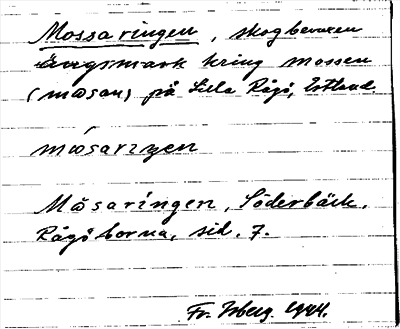 Mossaringen, skogbevuxen
ängsmark kring mossen
(måsan) på Lilla Rågö, Estland.
måsarıŋen
Måsaringen, Söderbäck,
Rågöborna, sid. 7.
Fr. Isberg 1944.